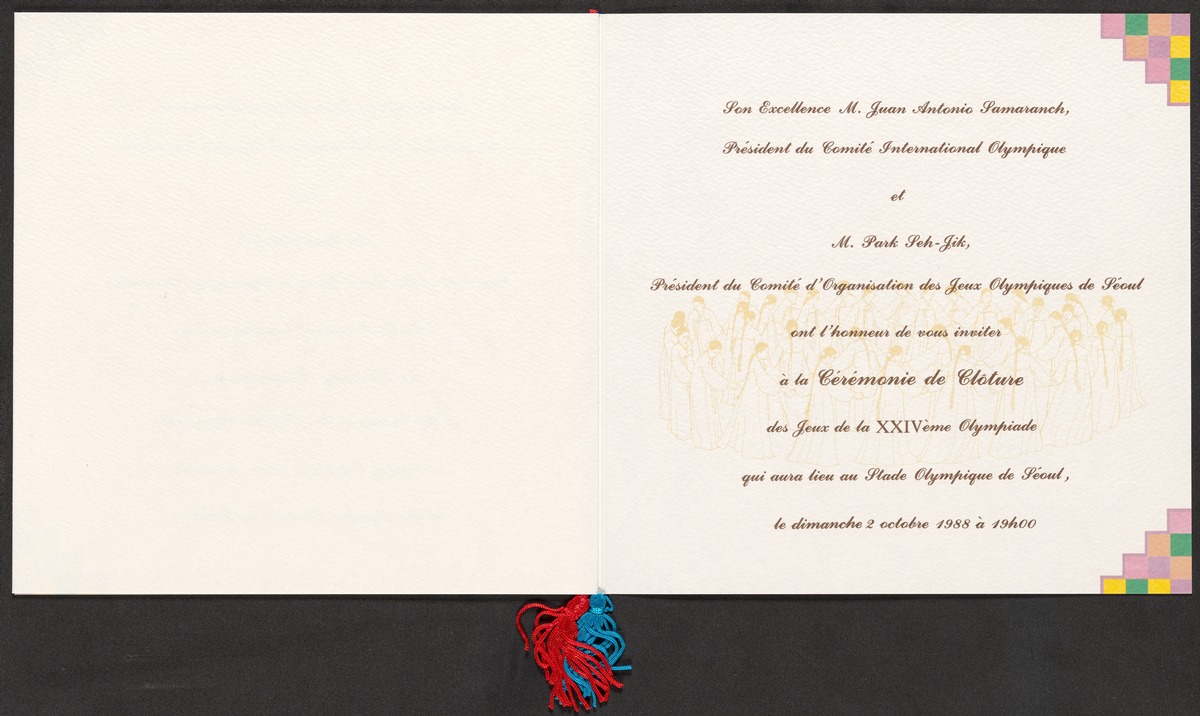 Son Excellence M. Juan Antonio Samaranch,
Président du Comité International Olympique
et
M. Park Seh-Jik,
Président du Comité d'Organisation des Jeux Olympiques de Séoul
ont l'honneur de vous inviter
à la Cérémonie de Clôture
des Jeux de la XXIVème Olympiade
qui aura lieu au Stade Olympique de Séoul,
le dimanche 2 octobre 1988 à 19h00